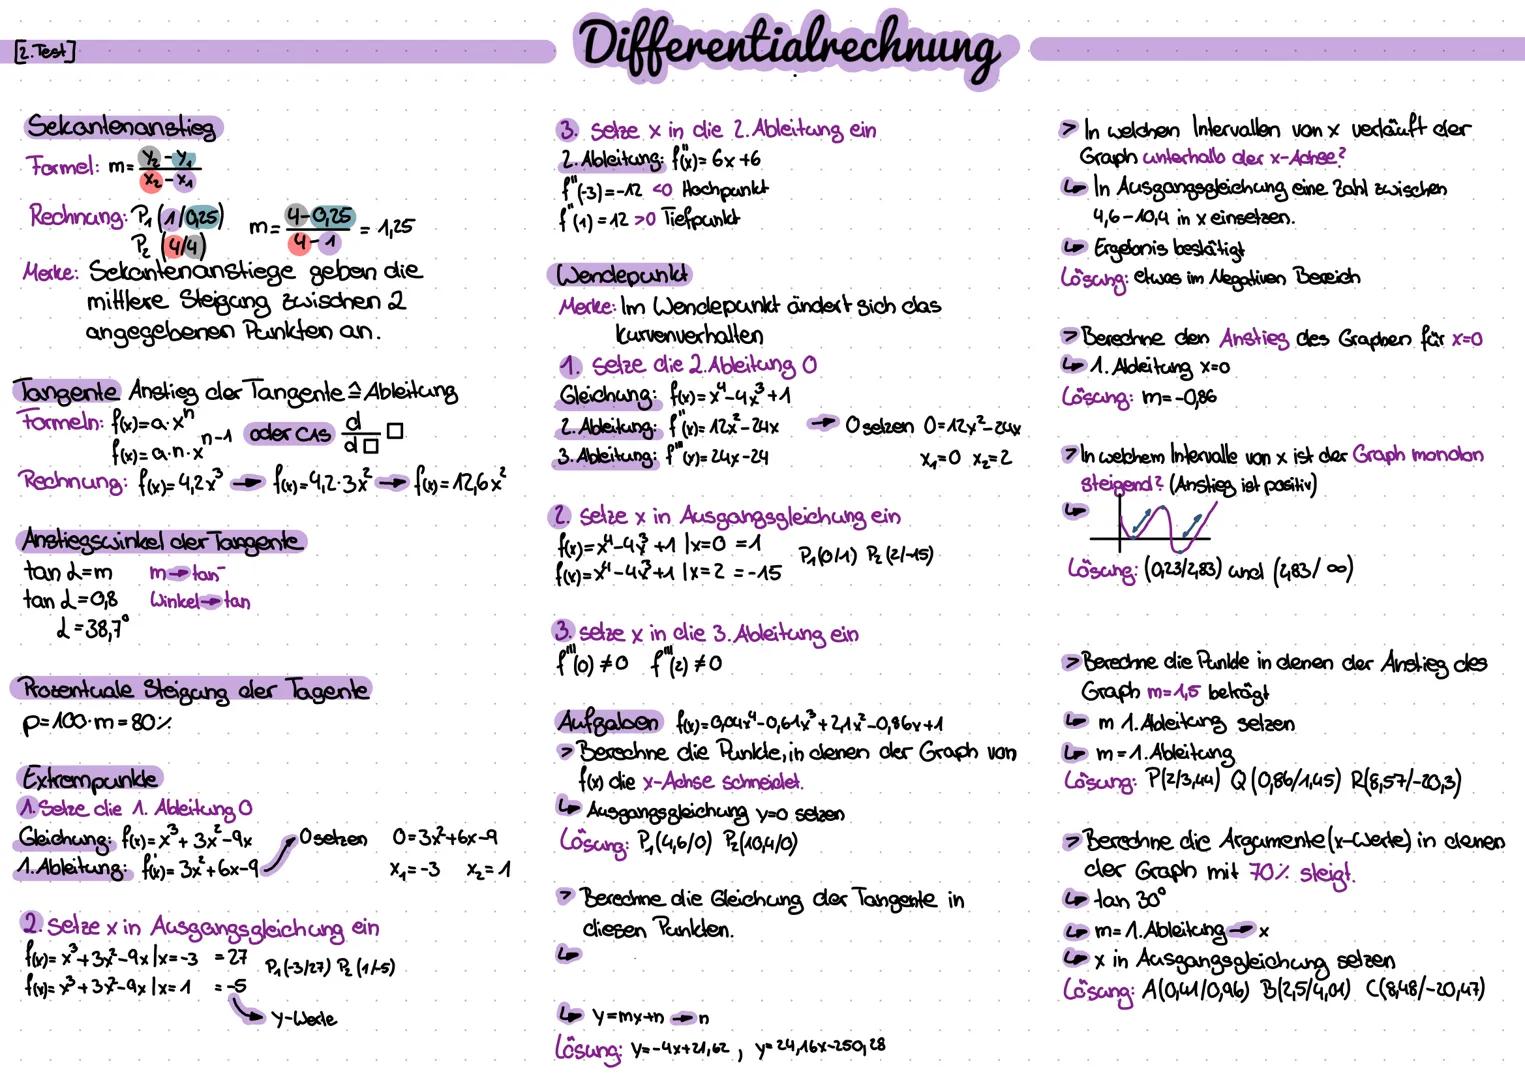 [2. Test]
Differentialrechnung
Sekantenanstieg
Formel: m = y₂-y₁ / x₂-x₁
Rechnung: P₁ (1/0,25)
P₂ (4/4)
m = 4-0,25 / 4-1 = 1,25
Merke: Sekantenanstiege geben die
mittlere Steigung zwischen 2
angegebenen Punkten an.
Tangente Anstieg der Tangente ≙ Ableitung
Formeln: f(x)=a·xⁿ
f(x)=a·n·xⁿ⁻¹ oder CAS d/d□ □
Rechnung: f(x)=4,2x³ → f(x)=4,2·3x² → f(x)=12,6x²
Anstiegswinkel der Tangente
tan α=m m→tan⁻
tan α=0,8 Winkel→tan
α=38,7°
Prozentuale Steigung der Tagente
p=100·m=80%
Extrempunkte
1. Setze die 1. Ableitung 0
Gleichung: f(x)=x³+3x²-9x 0 setzen 0=3x²+6x-9
1. Ableitung: f'(x)=3x²+6x-9 x₁=-3 x₂=1
2. Setze x in Ausgangsgleichung ein
f(x)=x³+3x²-9x |x=-3 =27
P₁(-3/27) P₂(1/-5)
f(x)=x³+3x²-9x |x=1 =-5
y-Werte
3. setze x in die 2. Ableitung ein
2. Ableitung: f''(x)=6x+6
f''(-3)=-12 <0 Hochpunkt
f''(1)=12 >0 Tiefpunkt
Wendepunkt
Merke: Im Wendepunkt ändert sich das
Kurvenverhalten
1. setze die 2. Ableitung 0
Gleichung: f(x)=x⁴-4x³+1
2. Ableitung: f''(x)=12x²-24x → 0 setzen 0=12x²-24x
3. Ableitung: f'''(x)=24x-24 x₁=0 x₂=2
2. setze x in Ausgangsgleichung ein
f(x)=x⁴-4x³+1 |x=0 =1
P₁(0/1) P₂(2/-15)
f(x)=x⁴-4x³+1 |x=2 =-15
3. setze x in die 3. Ableitung ein
f'''(0)≠0 f'''(2)≠0
Aufgaben f(x)=0,04x⁴-0,61x³+2,1x²-0,86x+1
> Berechne die Punkte, in denen der Graph von
f(x) die x-Achse schneidet.
↳ Ausgangsgleichung y=0 setzen
Lösung: P₁(4,6/0) P₂(10,4/0)
> Berechne die Gleichung der Tangente in
diesen Punkten.
↳
↳ y=mx+n → n
Lösung: y=-4x+21,62 , y=24,16x-250,28
> In welchen Intervallen von x verläuft der
Graph unterhalb der x-Achse?
↳ In Ausgangsgleichung eine Zahl zwischen
4,6-10,4 in x einsetzen.
↳ Ergebnis bestätigt
Lösung: etwas im Negativen Bereich
> Berechne den Anstieg des Graphen für x=0
↳ 1. Ableitung x=0
Lösung: m=-0,86
> In welchem Intervalle von x ist der Graph monoton
steigend? (Anstieg ist positiv)
↳
Lösung: (0,23/2,83) und (2,83/∞)
> Berechne die Punkte in denen der Anstieg des
Graph m=1,5 beträgt
↳ m 1. Ableitung setzen
↳ m=1. Ableitung
Lösung: P(2/3,44) Q(0,86/1,45) R(8,57/-20,3)
> Berechne die Argumente (x-Werte) in denen
der Graph mit 70% steigt.
↳ tan 30°
↳ m=1. Ableitung → x
↳ x in Ausgangsgleichung setzen
Lösung: A(0,41/0,96) B(2,5/4,01) C(8,48/-20,47)